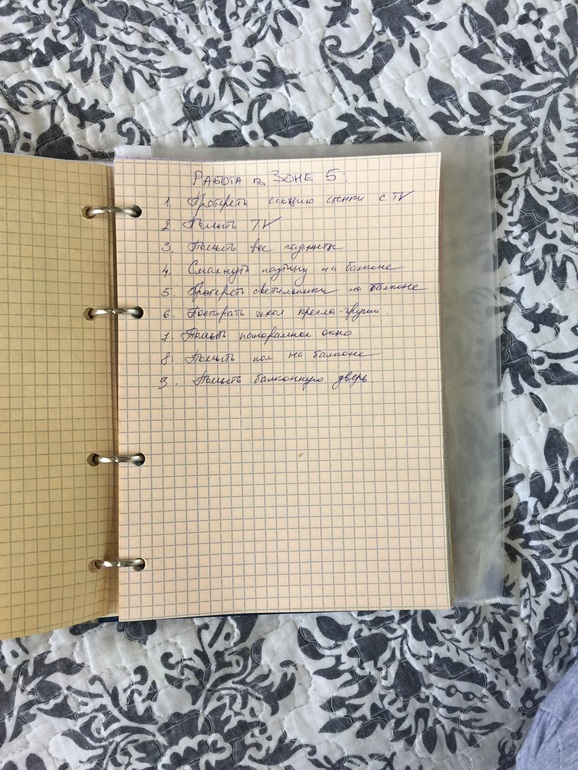 Работа в Зоне 5:
1. Протереть секцию стенки с TV
2. Помыть TV
3. Помыть все гаджеты
4. Смахнуть паутину на балконе
5. Протереть светильники на балконе
6. Постирать чехол кресла-груши.
7. Помыть панорамное окно
8. Помыть пол на балконе
9. Помыть балконную дверь